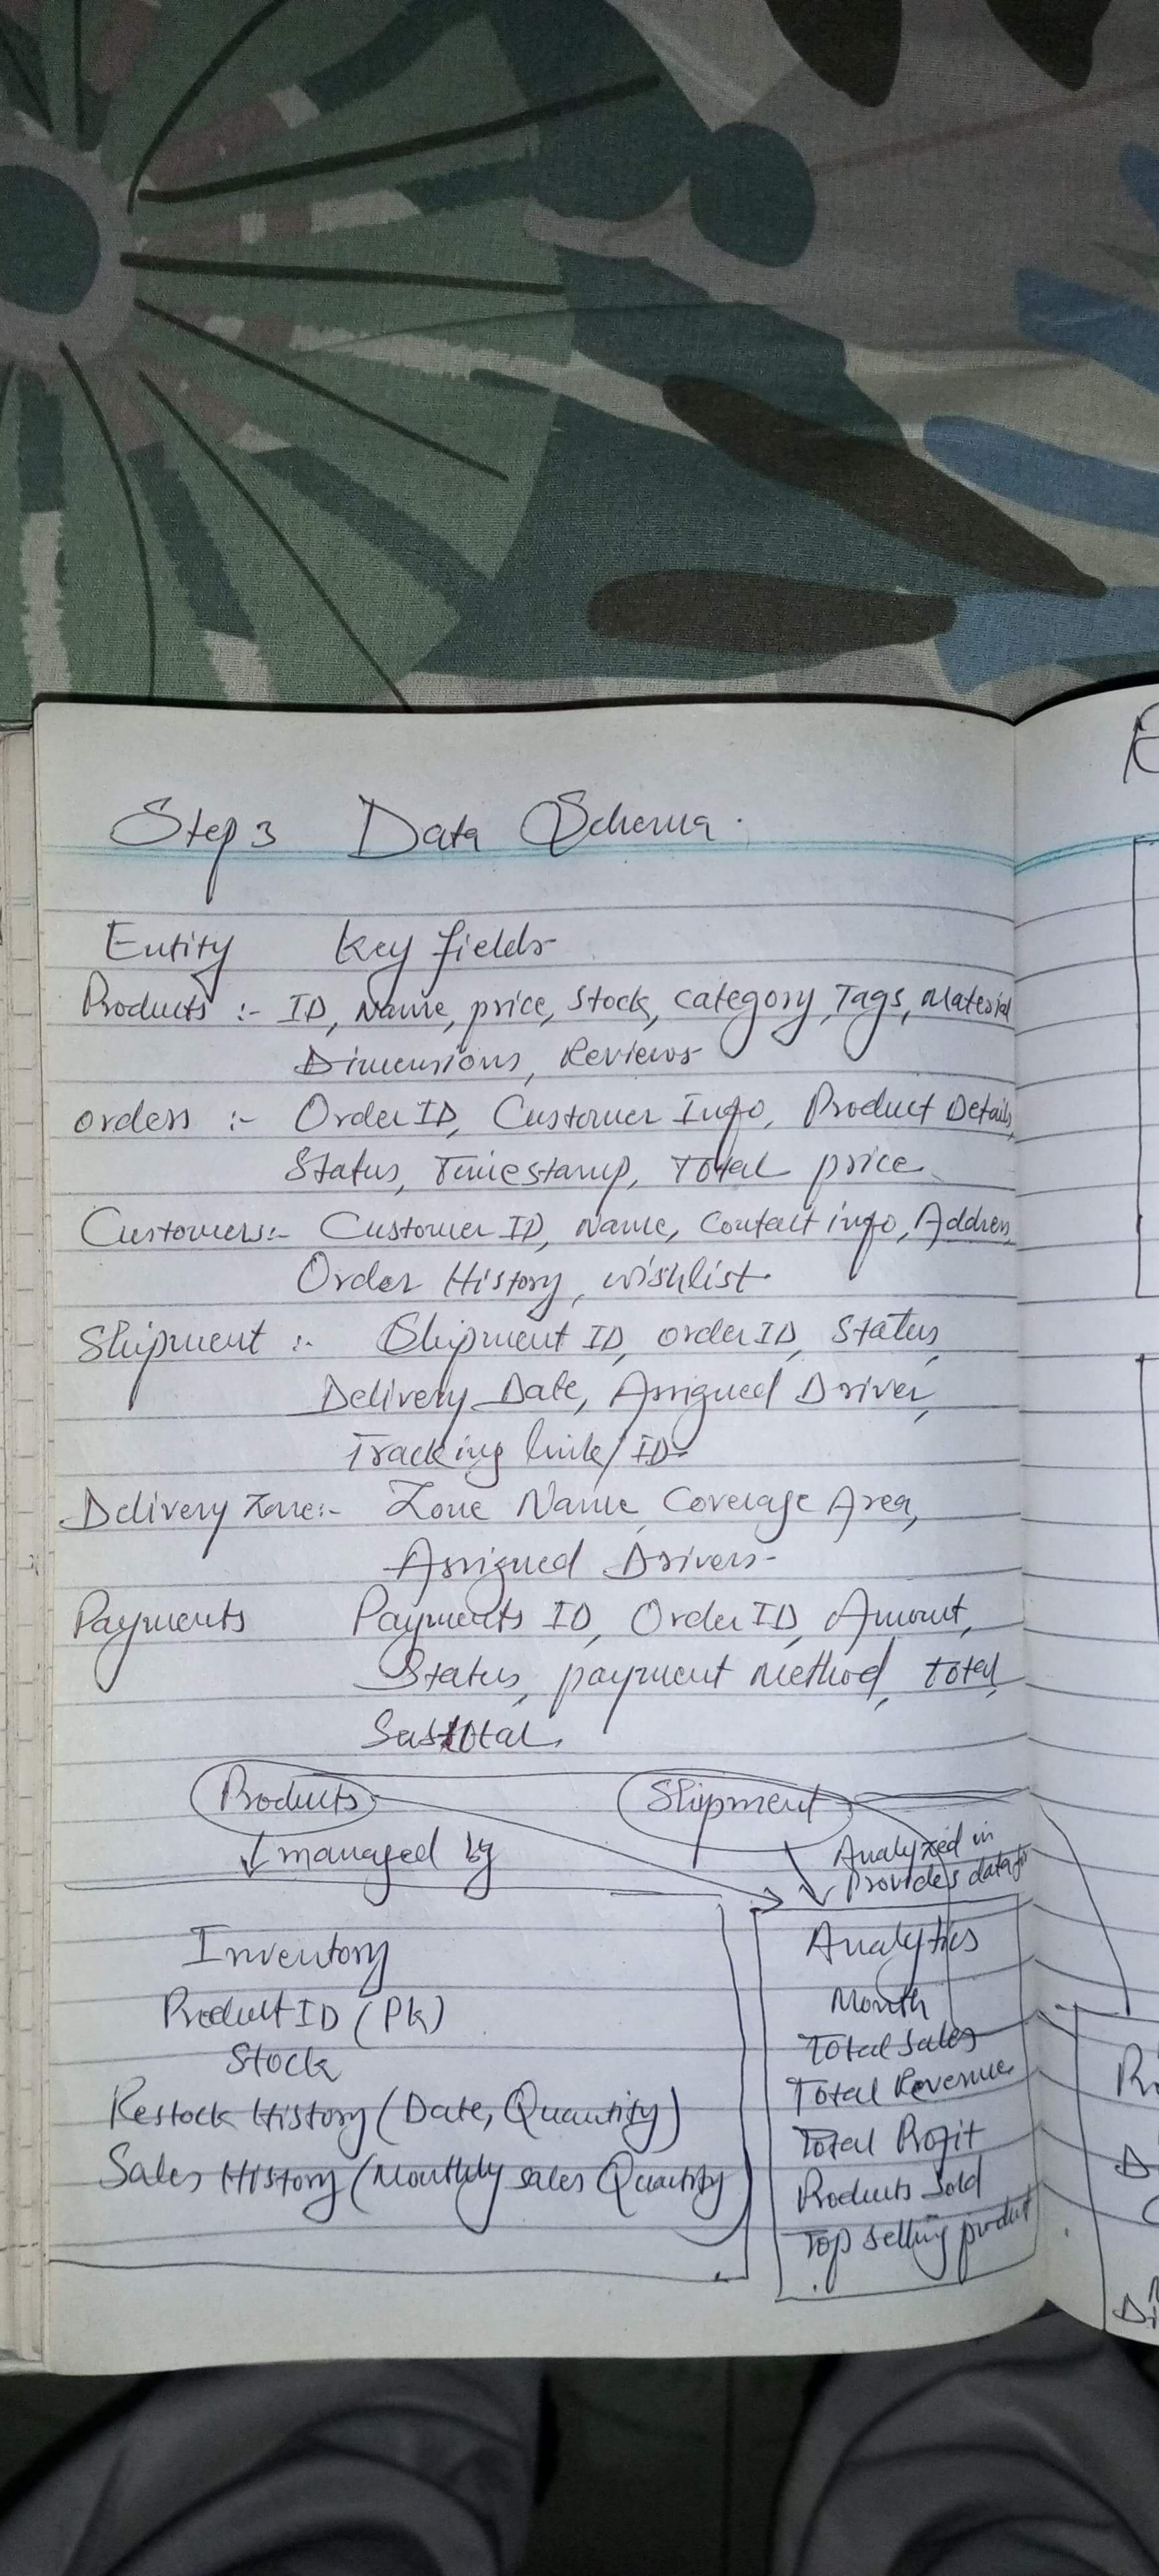 Step 3 Data Schema.
Entity Key fields
Products :- ID, Name, price, Stock, Category, Tags, Material
Dimensions, Reviews
orders :- Order ID, Customer Info, Product Details,
Status, Timestamp, Total price.
Customers:- Customer ID, Name, Contact info, Address,
Order History, wishlist.
Shipment :- Shipment ID, order ID, Status,
Delivery Date, Assigned Driver,
Tracking link/ID.
Delivery Zone:- Zone Name, Coverage Area,
Assigned Drivers-
Payments Payments ID, Order ID, Amount,
Status, payment method, Total,
Subtotal.
Products Shipment
managed by
Analyzed in
Provides data for
Inventory
Product ID (Pk)
Stock
Restock History (Date, Quantity)
Sales History (Monthly sales Quantity)
Analytics
Month
Total Sales
Total Revenue
Total Profit
Products Sold
Top selling product